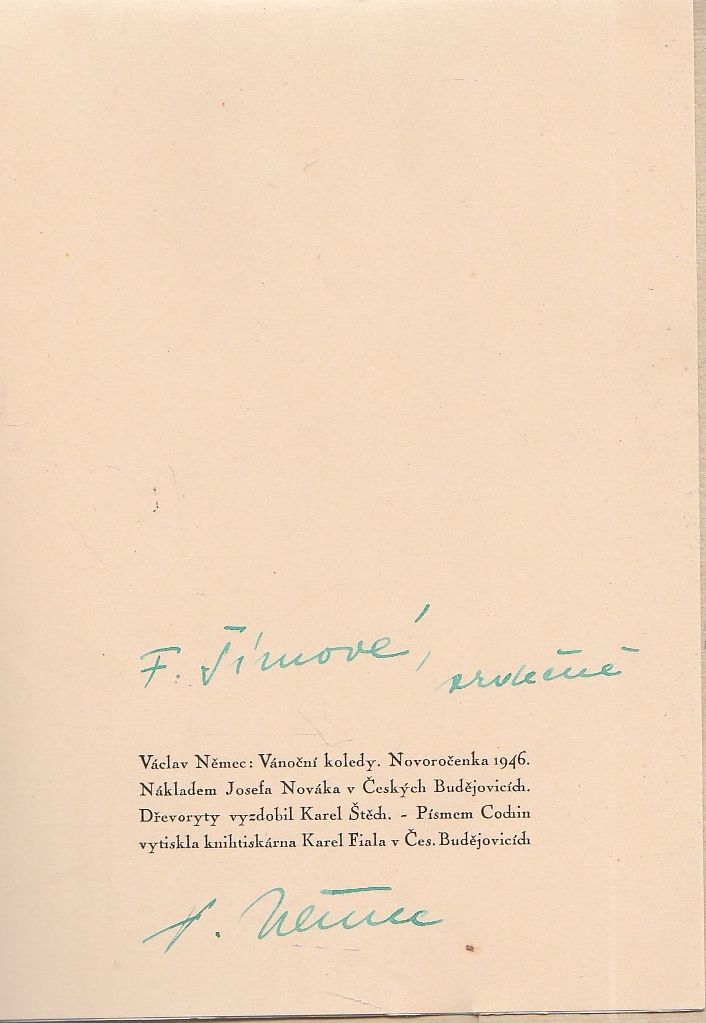 F. Šímové,
srdečně
Václav Němec: Vánoční koledy. Novoročenka 1946.
Nákladem Josefa Nováka v Českých Budějovicích.
Dřevoryty vyzdobil Karel Štěch. - Písmem Cochin
vytiskla knihtiskárna Karel Fiala v Čes. Budějovicích
V. Němec